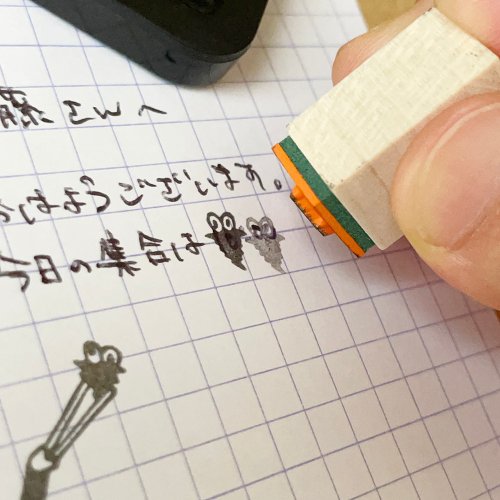 藤さんへ
おはようございます。
今日の集合は